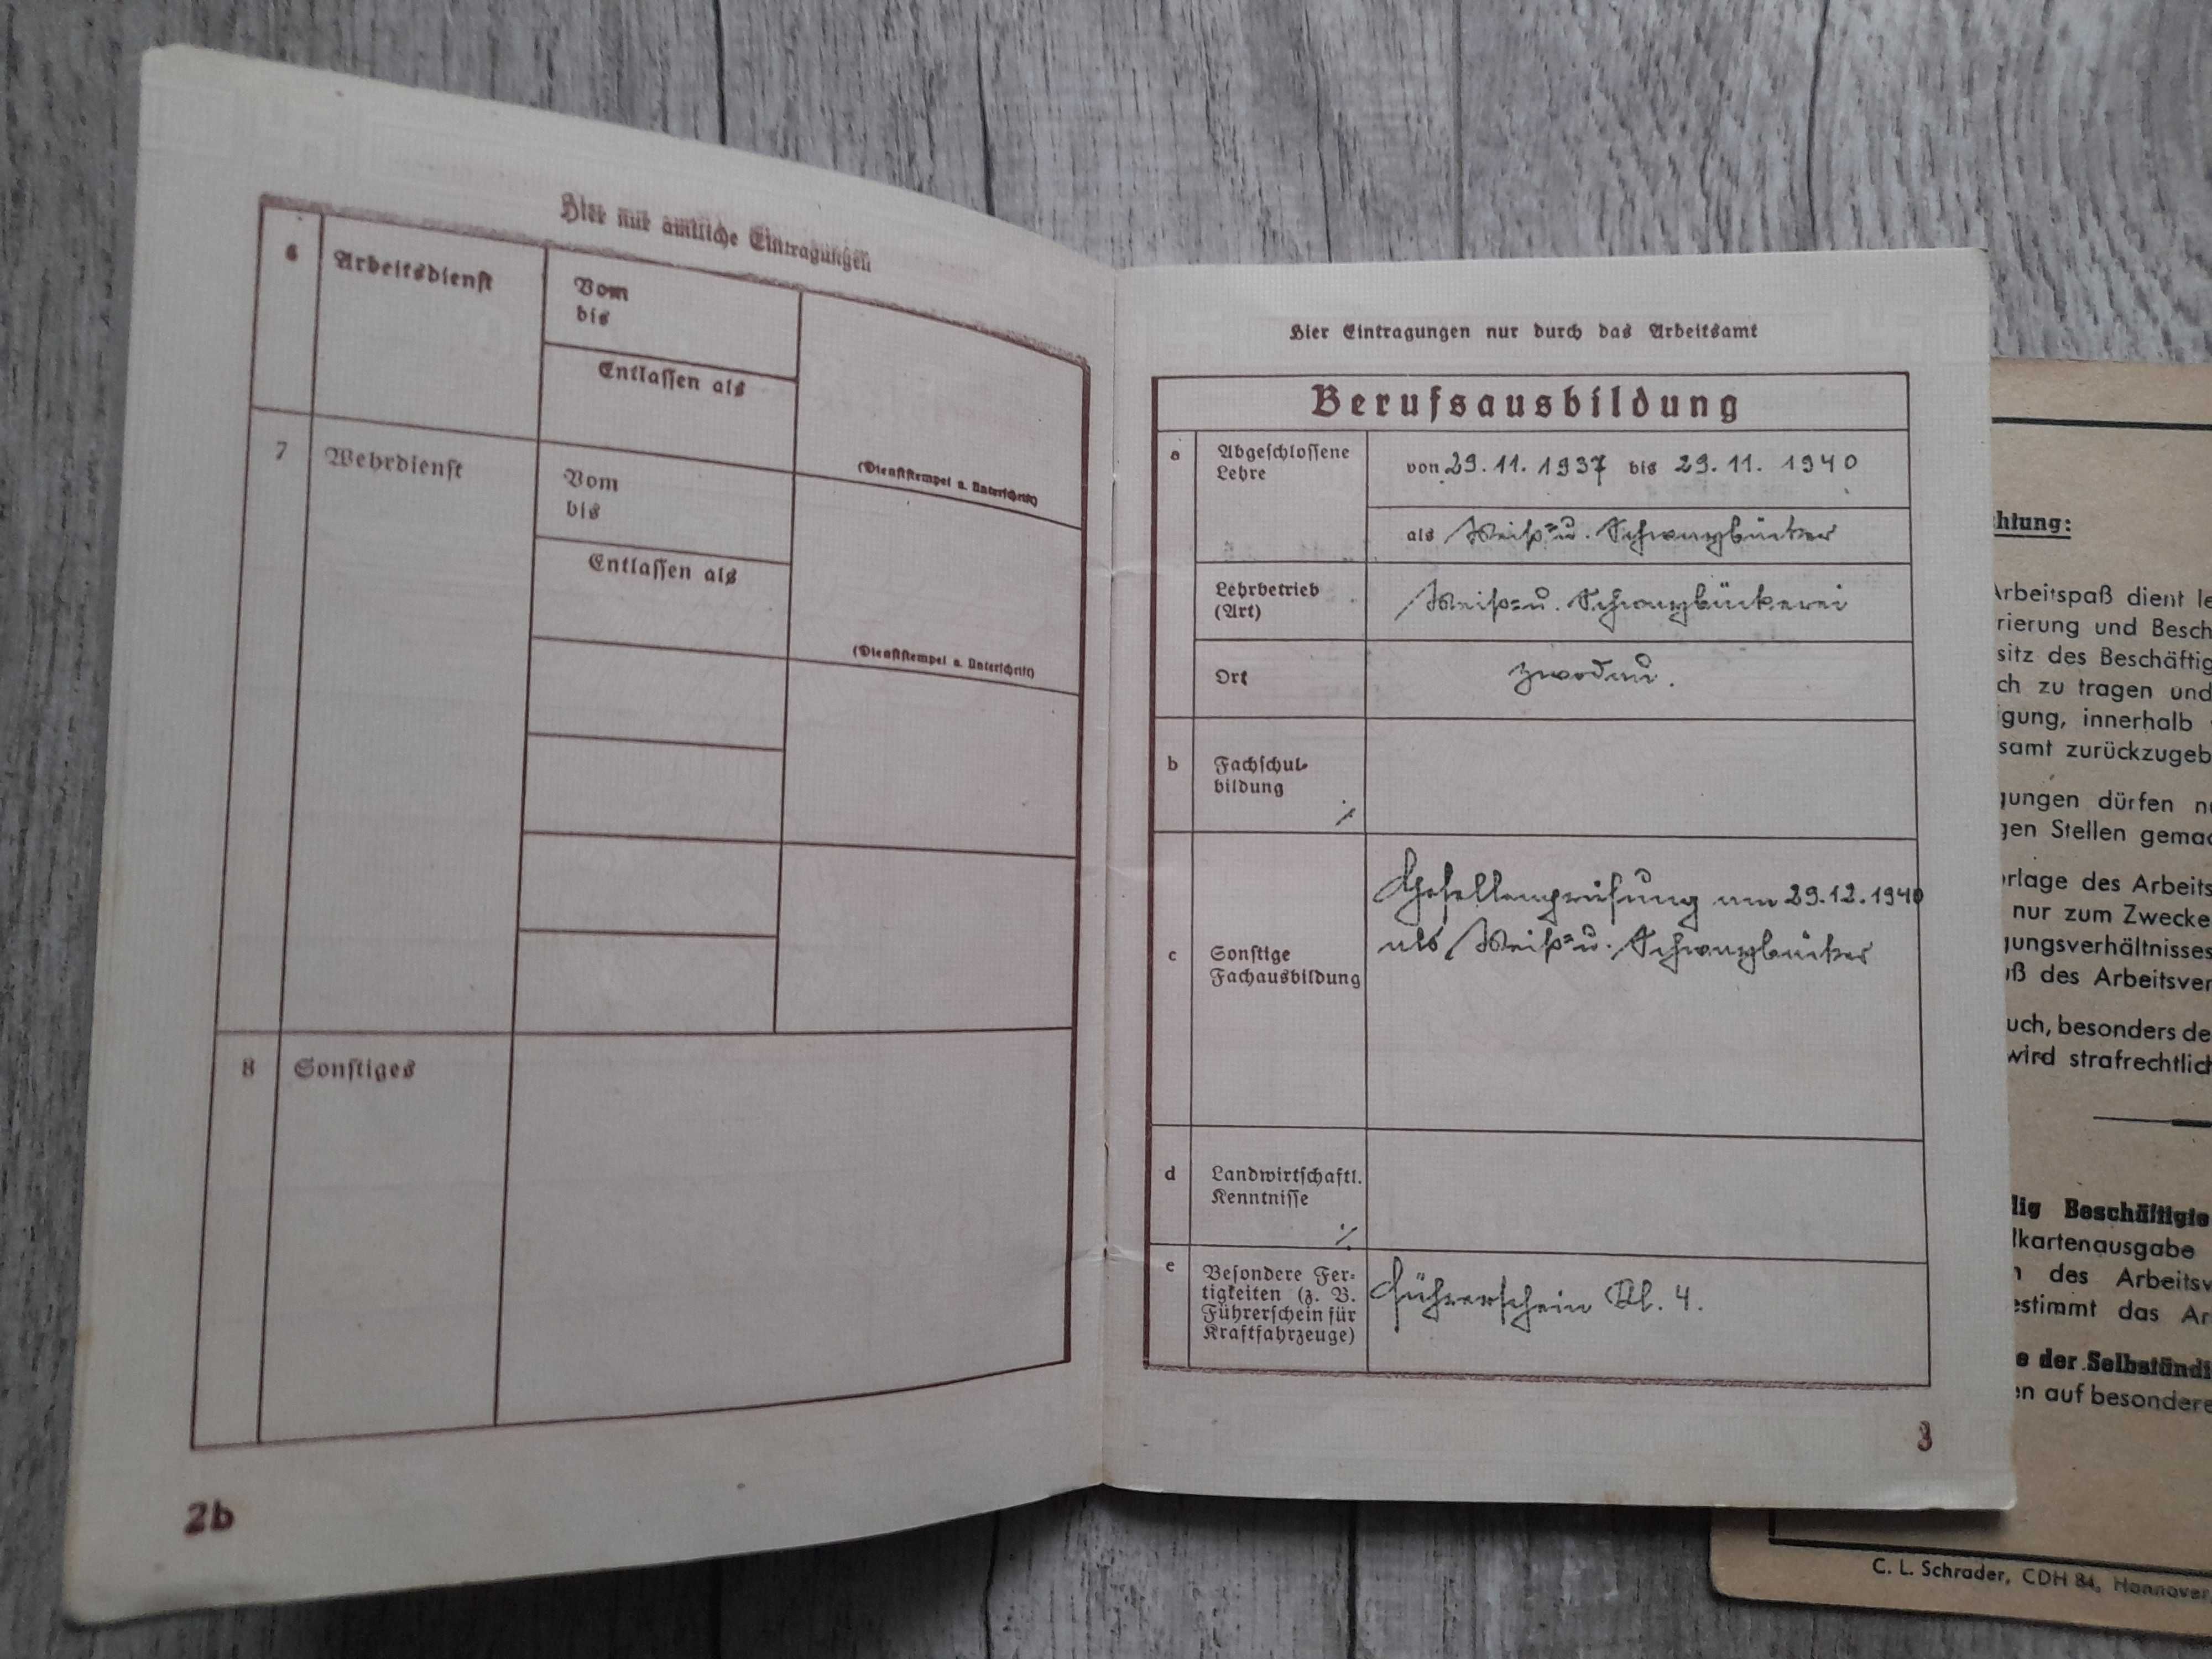 Hier nur amtliche Eintragungen
6 Arbeitsdienst
Vom
bis
Entlassen als
(Dienststempel u. Unterschrift)
7 Wehrdienst
Vom
bis
Entlassen als
(Dienststempel u. Unterschrift)
8 Sonstiges
2b
Hier Eintragungen nur durch das Arbeitsamt
Berufsausbildung
a Abgeschlossene
Lehre
von 29.11.1937 bis 29.11.1940
als Weiß= u. Schwarzbäcker
Lehrbetrieb
(Art)
Weiß= u. Schwarzbäckerei
Ort
Zwodau.
b Fachschul-
bildung
c Sonstige
Fachausbildung
Gesellenprüfung am 29.12.1940
als Weiß= u. Schwarzbäcker
d Landwirtschaftl.
Kenntnisse
e Besondere Fer=
tigkeiten (z. B.
Führerschein für
Kraftfahrzeuge)
Führerschein Kl. 4.
3
hlung:
Arbeitspaß dient le
rierung und Besch
sitz des Beschäftig
ch zu tragen und
igung, innerhalb
samt zurückzugeb
gungen dürfen nu
gen Stellen gemac
orlage des Arbeits
nur zum Zwecke
gungsverhältnisses
ß des Arbeitsver
uch, besonders de
wird strafrechtlich
dig Beschäftigte
lkartenausgabe
n des Arbeitsv
estimmt das Ar
e der Selbständi
en auf besondere
C. L. Schrader, CDH 84, Hannover